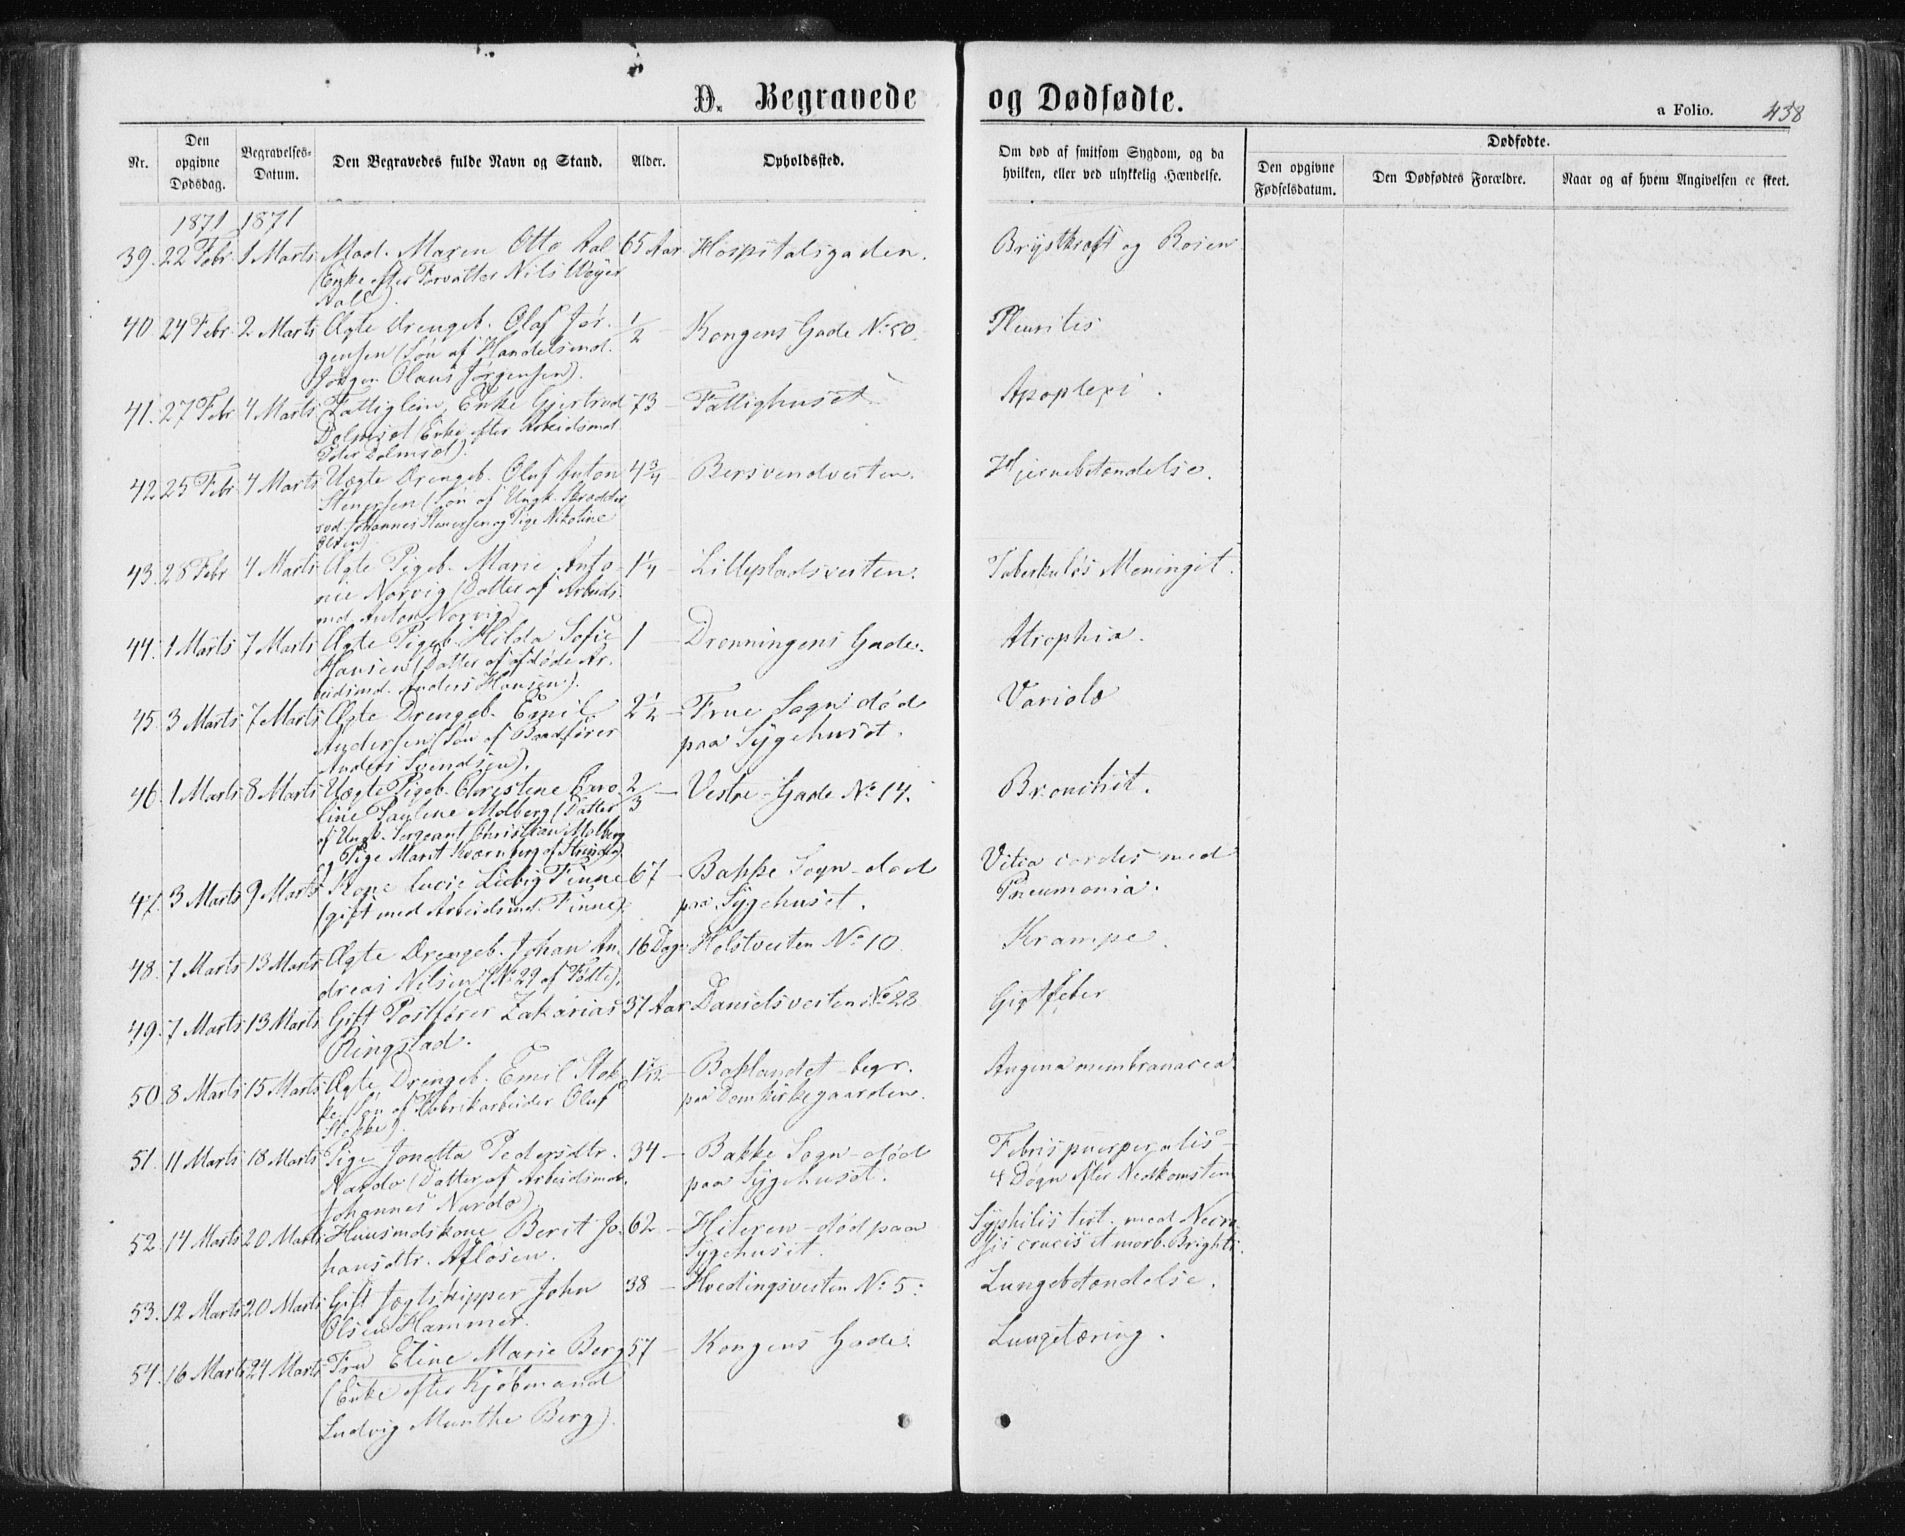 D. Begravede og Dødfødte.
a Folio. 438
Nr.
Den opgivne Dødsdag.
Begravelses-Datum.
Den Begravedes fulde Navn og Stand.
Alder.
Opholdssted.
Om død af smitsom Sygdom, og da hvilken, eller ved ulykkelig Hændelse.
Dødfødte.
Den opgivne Fødselsdatum.
Den Dødfødtes Forældre.
Naar og af hvem Angivelsen er skeet.
1871 1871
39. 22 Febr 1 Marts Mad. Maren Otto Aal 65 Aar Hospitalsgaden. Brystkraft og Rosen
(Enke efter Forvalter Nils Weyer
Aall)
40. 24 Febr. 2 Marts Ægte Drengeb. Olaf Jør- 1/2 – Kongens Gade No 50. Pleurites
gensen (Søn af Handelsmd.
Jørgen Olaus Jørgensen).
41. 27 Febr 4 Marts Fattiglem, Enke Gjertrud 73 – Fattighuset Apoplexi.
Dolmset (Enke efter Arbeidsmd
Peter Dolmset).
42. 25 Febr 4 Marts Uægte Drengeb. Oluf Anton 4 3/4 – Bersvendveiten. Hjernebetændelse.
Stenersen (Søn af Ungk. Skrædder
Johannes Stenersen og Pige Nikoline
Olsen)
43. 28 Febr 4 Marts Ægte Pigeb. Marie Anto- 1 1/4 – Lillepladsveiten. Tuberkuløs Meningit.
nie Norvig (Datter af Arbeids-
md. Anton Norvig)
44. 1 Marts 7 Marts Ægte Pigeb. Hilda Sofie 1 – Dronningens Gade. Atrophia.
Hansen (Datter af afdøde Ar-
beidsmd. Anders Hansen).
45. 3 Marts 7 Marts Ægte Drengeb. Emil 2 1/2 – Frue Sogn død Variola
Andersen (Søn af Baadfører paa Sygehuset.
Anders Svendsen).
46. 1 Marts 8 Marts Uægte Pigeb. Christine Caro- 2/3 – Vestre Gade No 14. Bronchit.
line Pauline Molberg (Datter
af Ungk. Sergeant Christian Molberg
og Pige Marit Kværnberg af Strinden)
47. 3 Marts 9 Marts Kone Lucie Liebig Finne 67 – Bakke Sogn – død Vitia cordis med
(gift med Arbeidsmd. Finne). paa Sygehuset. Pneumonia.
48. 7 Marts 13 Marts Ægte Drengeb. Johan An- 16 Dage Holstveiten No 10. Krampe.
dreas Nilsen (No 29 af Fødte).
49. 7 Marts 13 Marts Gift Postfører Zakarias 37 Aar Danielsveiten No 23 Gigtfeber
Ringstad.
50. 8 Marts 15 Marts Ægte Drengeb. Emil Stok- 1 – Baklandet – begr. Angina membranacea
ke (Søn af Fabrikarbeider Oluf paa Domkirkegaarden.
Stokke).
51. 11 Marts 18 Marts Pige Jonetta Pedersdtr. 34 – Bakke Sogn – død Febris puerperalis –
Nardo (Datter af Arbeidsmd. paa Sygehuset. 4 Døgn efter Nedkomsten
Johannes Nardo)
52. 14 Marts 20 Marts Huusmdskone Berit Jo- 62 – Hiteren – død paa Syphilis tert. med Necro-
hansdtr. Aflosen. Sygehuset. sis crucis et morb. Brightii.
53. 12 Marts 20 Marts Gift Jægtskipper John 38 – Hvedingsveiten No 5. Lungebetændelse.
Olsen Hammer.
54. 16 Marts 24 Marts Fru Eline Marie Berg 57 – Kongens Gade. Lungetæring.
(Enke efter Kjøbmand
Ludvig Munthe Berg).